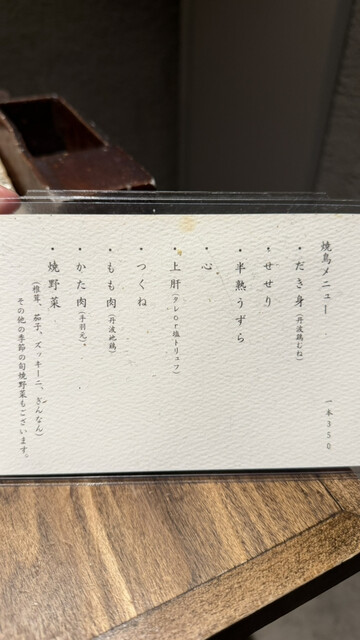 焼鳥メニュー 一本350
・だき身(丹波鶏むね)
・せせり
・半熟うずら
・心
・上肝(タレor塩トリュフ)
・つくね
・もも肉(丹波地鶏)
・かた肉(手羽元)。
・焼野菜
(椎茸、茄子、ズッキーニ、ぎんなん)
その他の季節の旬焼野菜もございます。